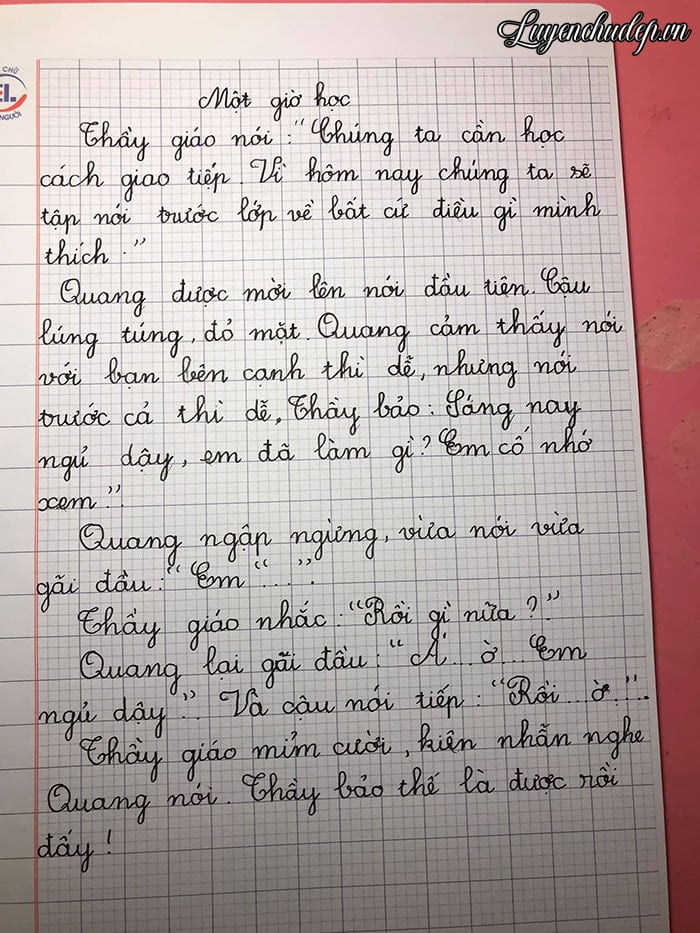 Luyenchudep.vn
CHỮ
EL
NGƯỜI
Một giờ học
Thầy giáo nói : "Chúng ta cần học
cách giao tiếp. Vì hôm nay chúng ta sẽ
tập nói trước lớp về bất cứ điều gì mình
thích ."
Quang được mời lên nói đầu tiên. Cậu
lúng túng, đỏ mặt. Quang cảm thấy nói
với bạn bên cạnh thì dễ, nhưng nói
trước cả thì dễ, Thầy bảo : Sáng nay
ngủ dậy, em đã làm gì? Em cố nhớ
xem".
Quang ngập ngừng, vừa nói vừa
gãi đầu : "Em " ... ".
Thầy giáo nhắc : "Rồi gì nữa ?"
Quang lại gãi đầu : "À ... ờ ... Em
ngủ dậy ". Và cậu nói tiếp : "Rồi ... ờ ...".
Thầy giáo mỉm cười, kiên nhẫn nghe
Quang nói. Thầy bảo thế là được rồi
đấy !